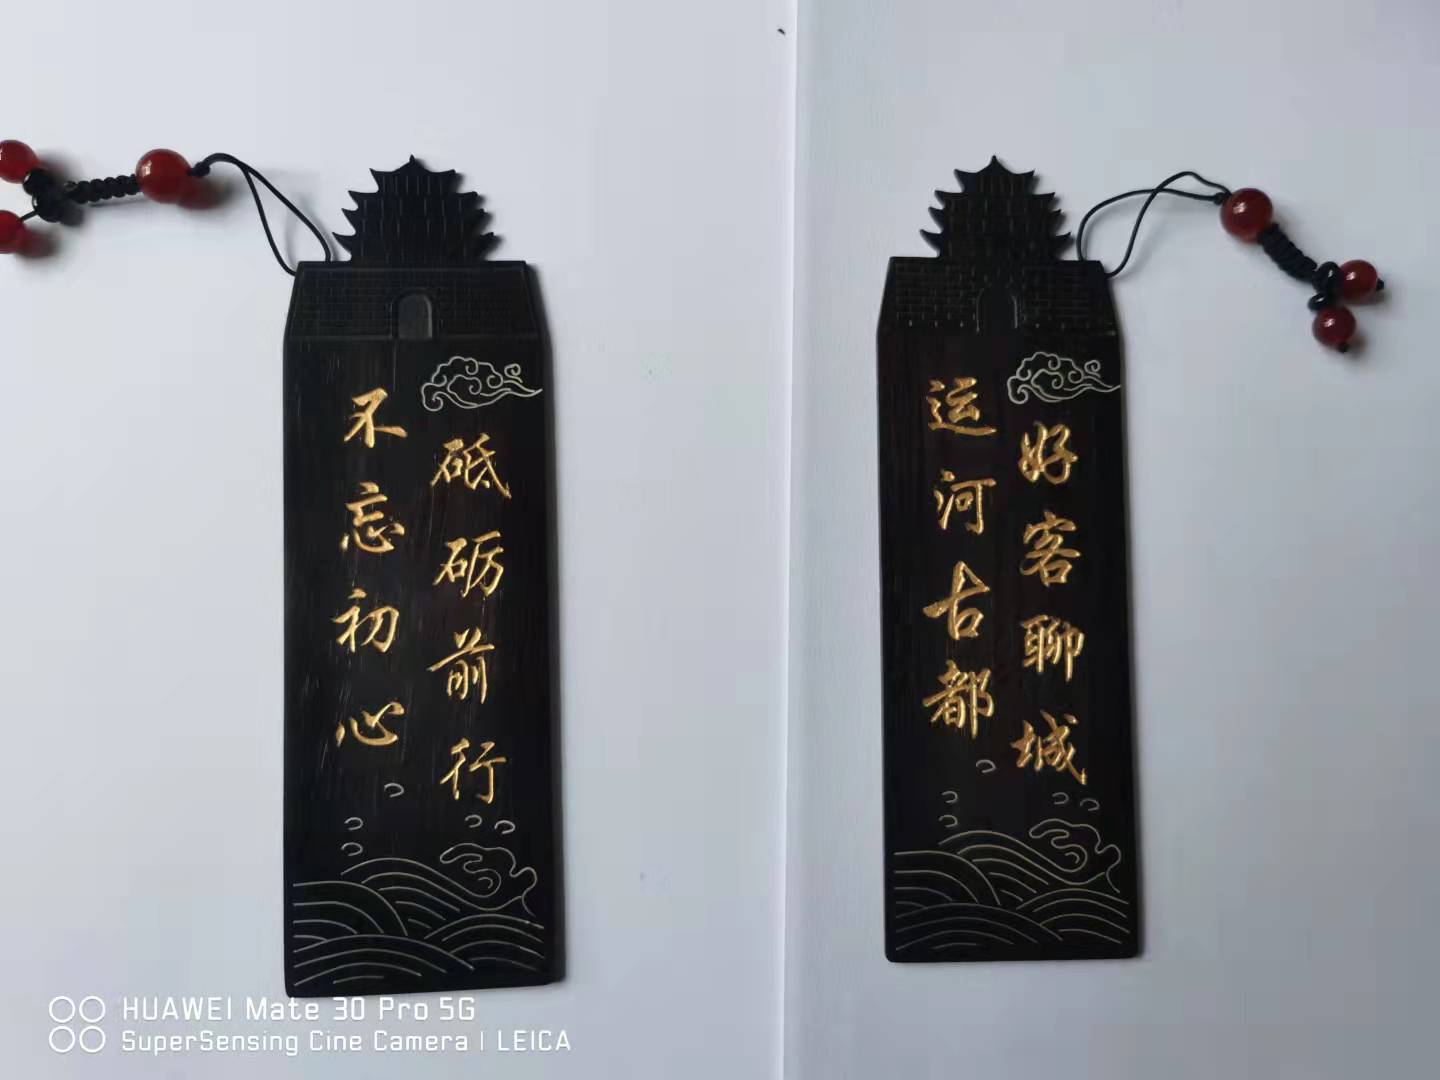 不忘初心
砥砺前行
运河古都
好客聊城
HUAWEI Mate 30 Pro 5G
SuperSensing Cine Camera | LEICA